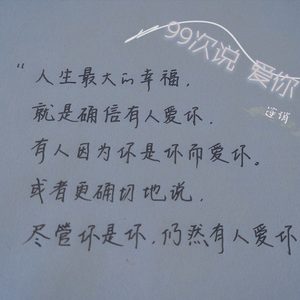 99次说 爱你
“人生最大的幸福,
就是确信有人爱你,
有人因为你是你而爱你。
或者更确切地说,
尽管你是你,仍然有人爱你